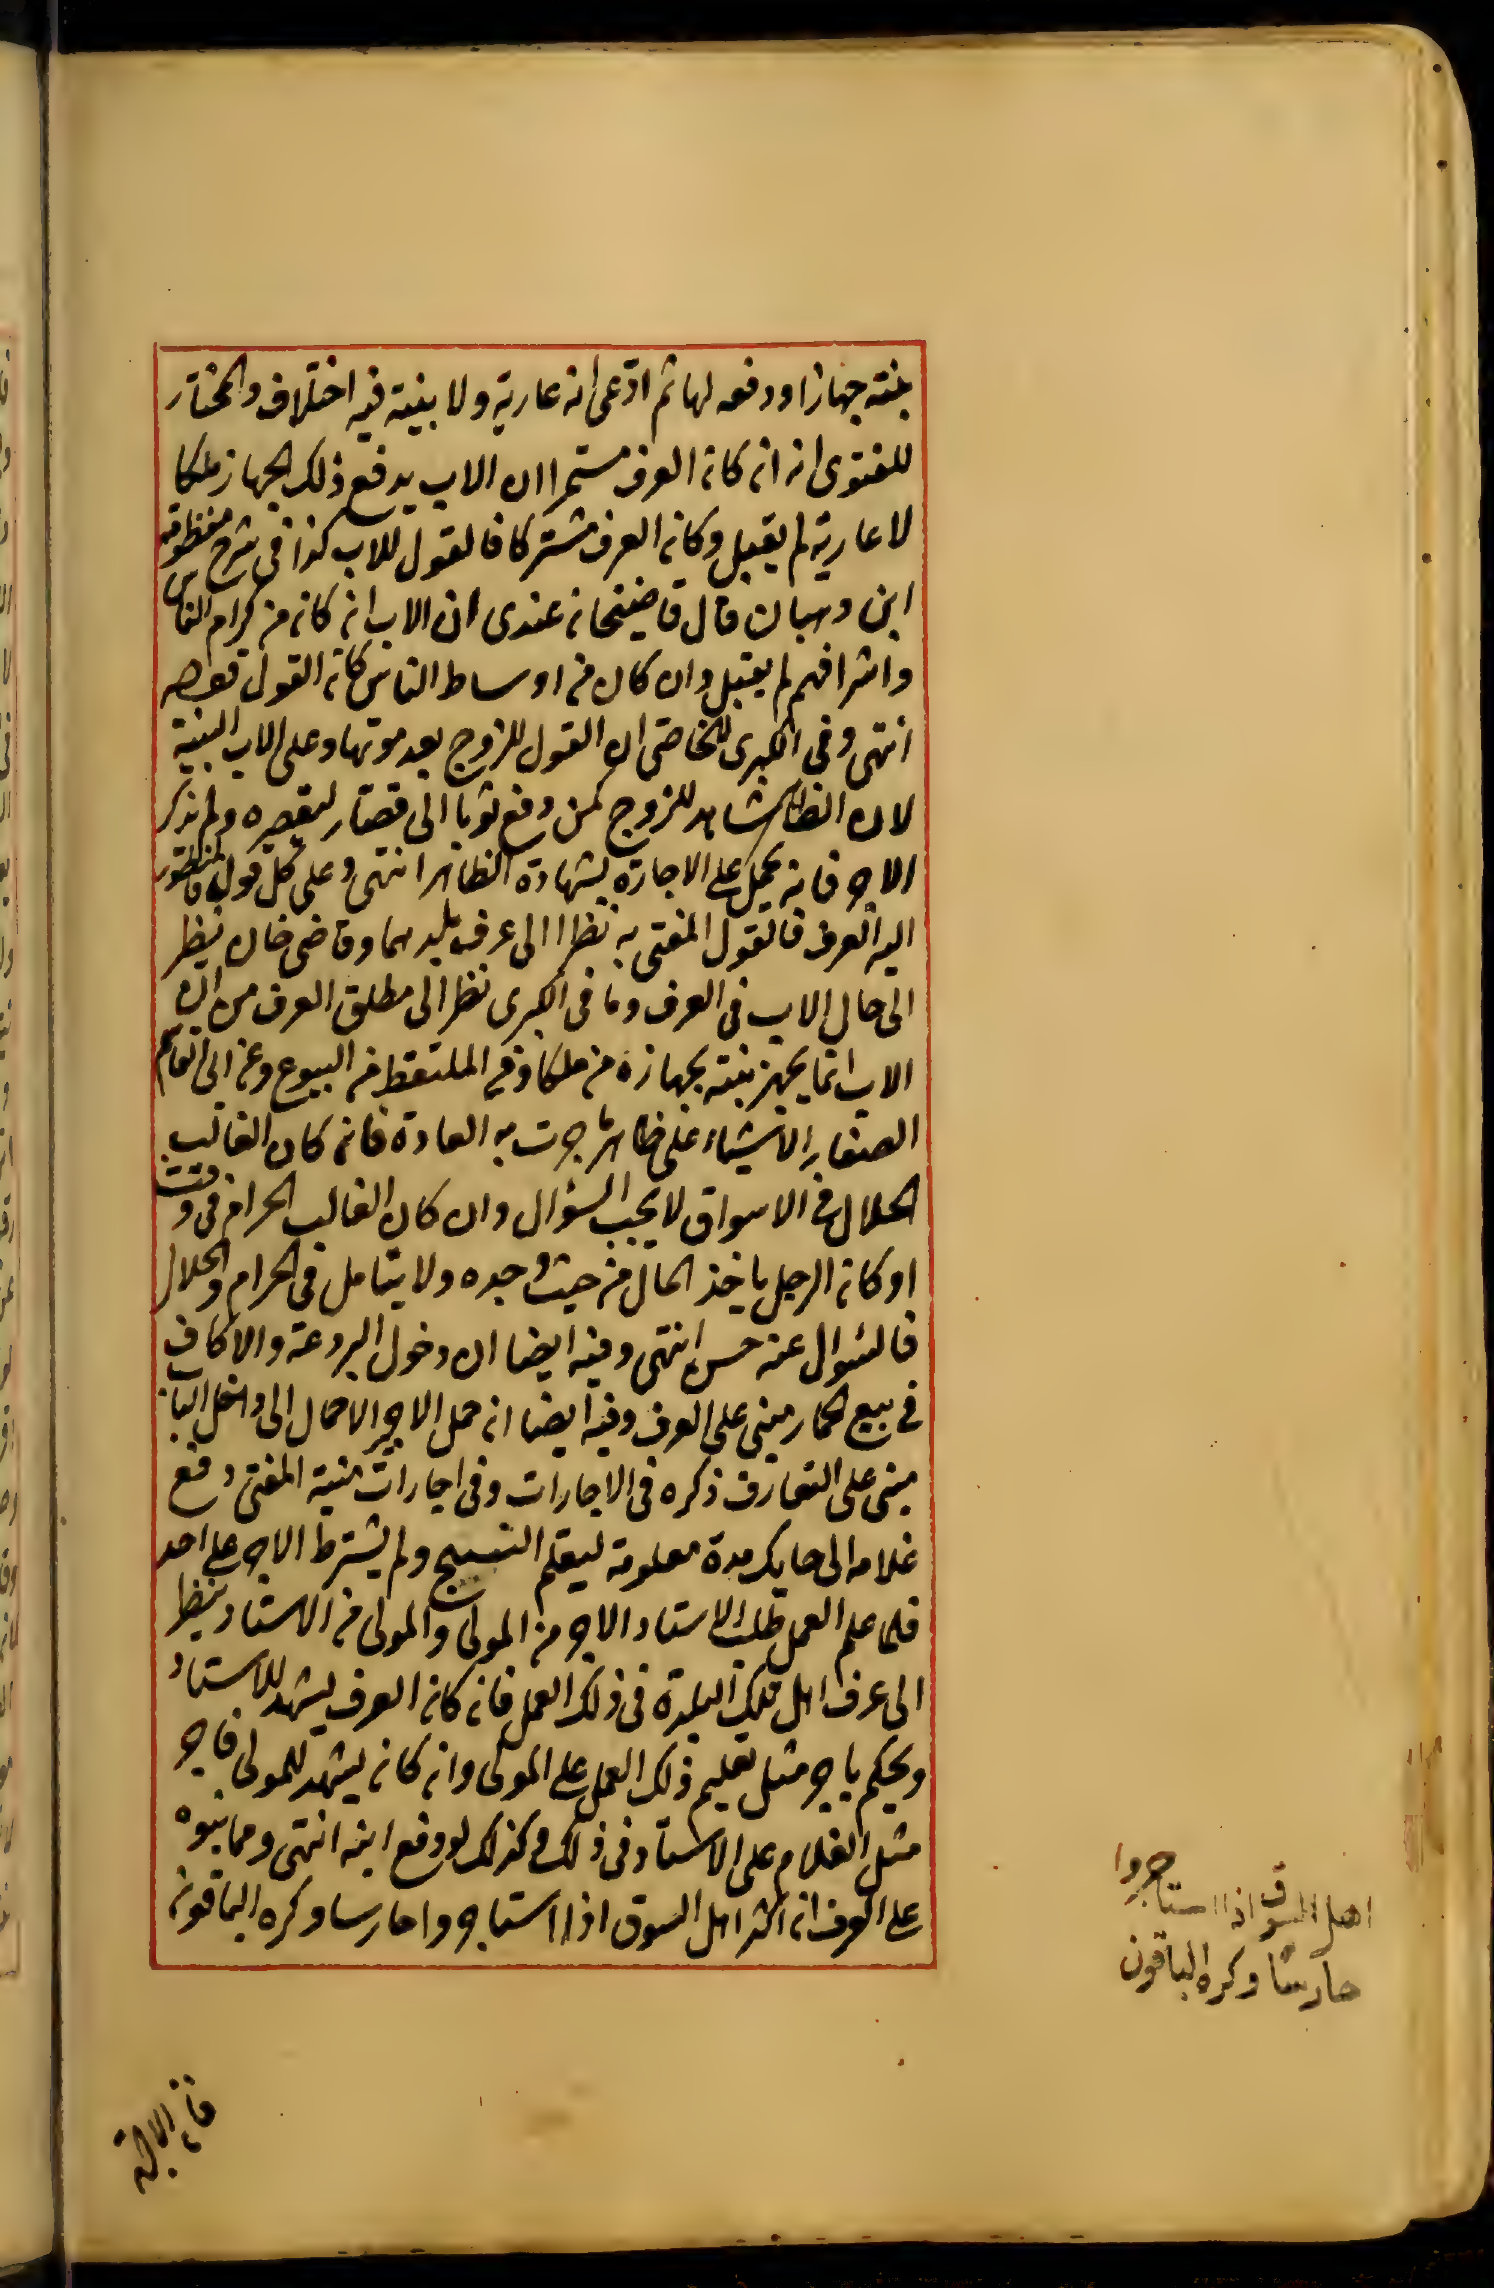 بنته جهازا ودفعه لها ثم ادعى انه عارية ولا بينة فيه اختلاف والمختار
للفتوى انه ان كان العرف مستمرا ان الاب يدفع ذلك الجهاز ملكا
لا عارية لم يقبل وكان العرف مشتركا فالقول للاب كذا فى شرح منظومة
ابن وهبان قال قاضيخان عندى ان الاب ان كان من كرام الناس
واشرافهم لم يقبل وان كان من اوساط الناس كان القول قوله
انتهى وفى الكبرى للخاصى ان القول للزوج بعد موتها وعلى الاب البينة
لان الظاهر شاهد للزوج كمن دفع ثوبا الى قصار ليقصره ولم يذكر
الاجر فانه يحمل على الاجارة بشهادة الظاهر انتهى وعلى كل قول فالمنظور
اليه العرف فالقول المفتى به نظرا الى عرف بلدهما وقاضى خان نظر
الى حال الاب فى العرف وما فى الكبرى نظر الى مطلق العرف من ان
الاب انما يجهز بنته بجهازه من ملكا وفى الملتقط من البيوع وعن ابى القاسم
الصفار الاشياء على ظاهر ما جرت به العادة فان كان الغالب
الحلال فى الاسواق لا يجب السؤال وان كان الغالب الحرام فى وقت
او كان الرجل ياخذ المال من حيث وجده ولا يتامل فى الحرام والحلال
فالسوال عنه حسن انتهى وفيه ايضا ان دخول البردعة والاكاف
فى بيع الحمار مبنى على العرف وفيه ايضا ان حمل الاجير الاحمال الى داخل الباب
مبنى على التعارف ذكره فى الاجارات وفى اجارات منية المفتى دفع
غلامه الى حايك مدة معلومة ليتعلم النسيج ولم يشترط الاجر على احد
فلما علم العمل طلب الاستاد الاجر من المولى والمولى من الاستاد ينظر
الى عرف اهل تلك البلدة فى ذلك العمل فان كان العرف يشهد للاستاد
ويحكم باجر مثل تعليم ذلك العمل على المولى وان كان يشهد للمولى فاجر
مثل الغلام على الاستاد فى ذلك وكذلك لو دفع ابنه انتهى ومما بنوه
على العرف ان اكثر اهل السوق اذا استاجروا حارسا وكره الباقون
اهل السوق اذا استاجروا
حارسا وكره الباقون
فان الاجرة